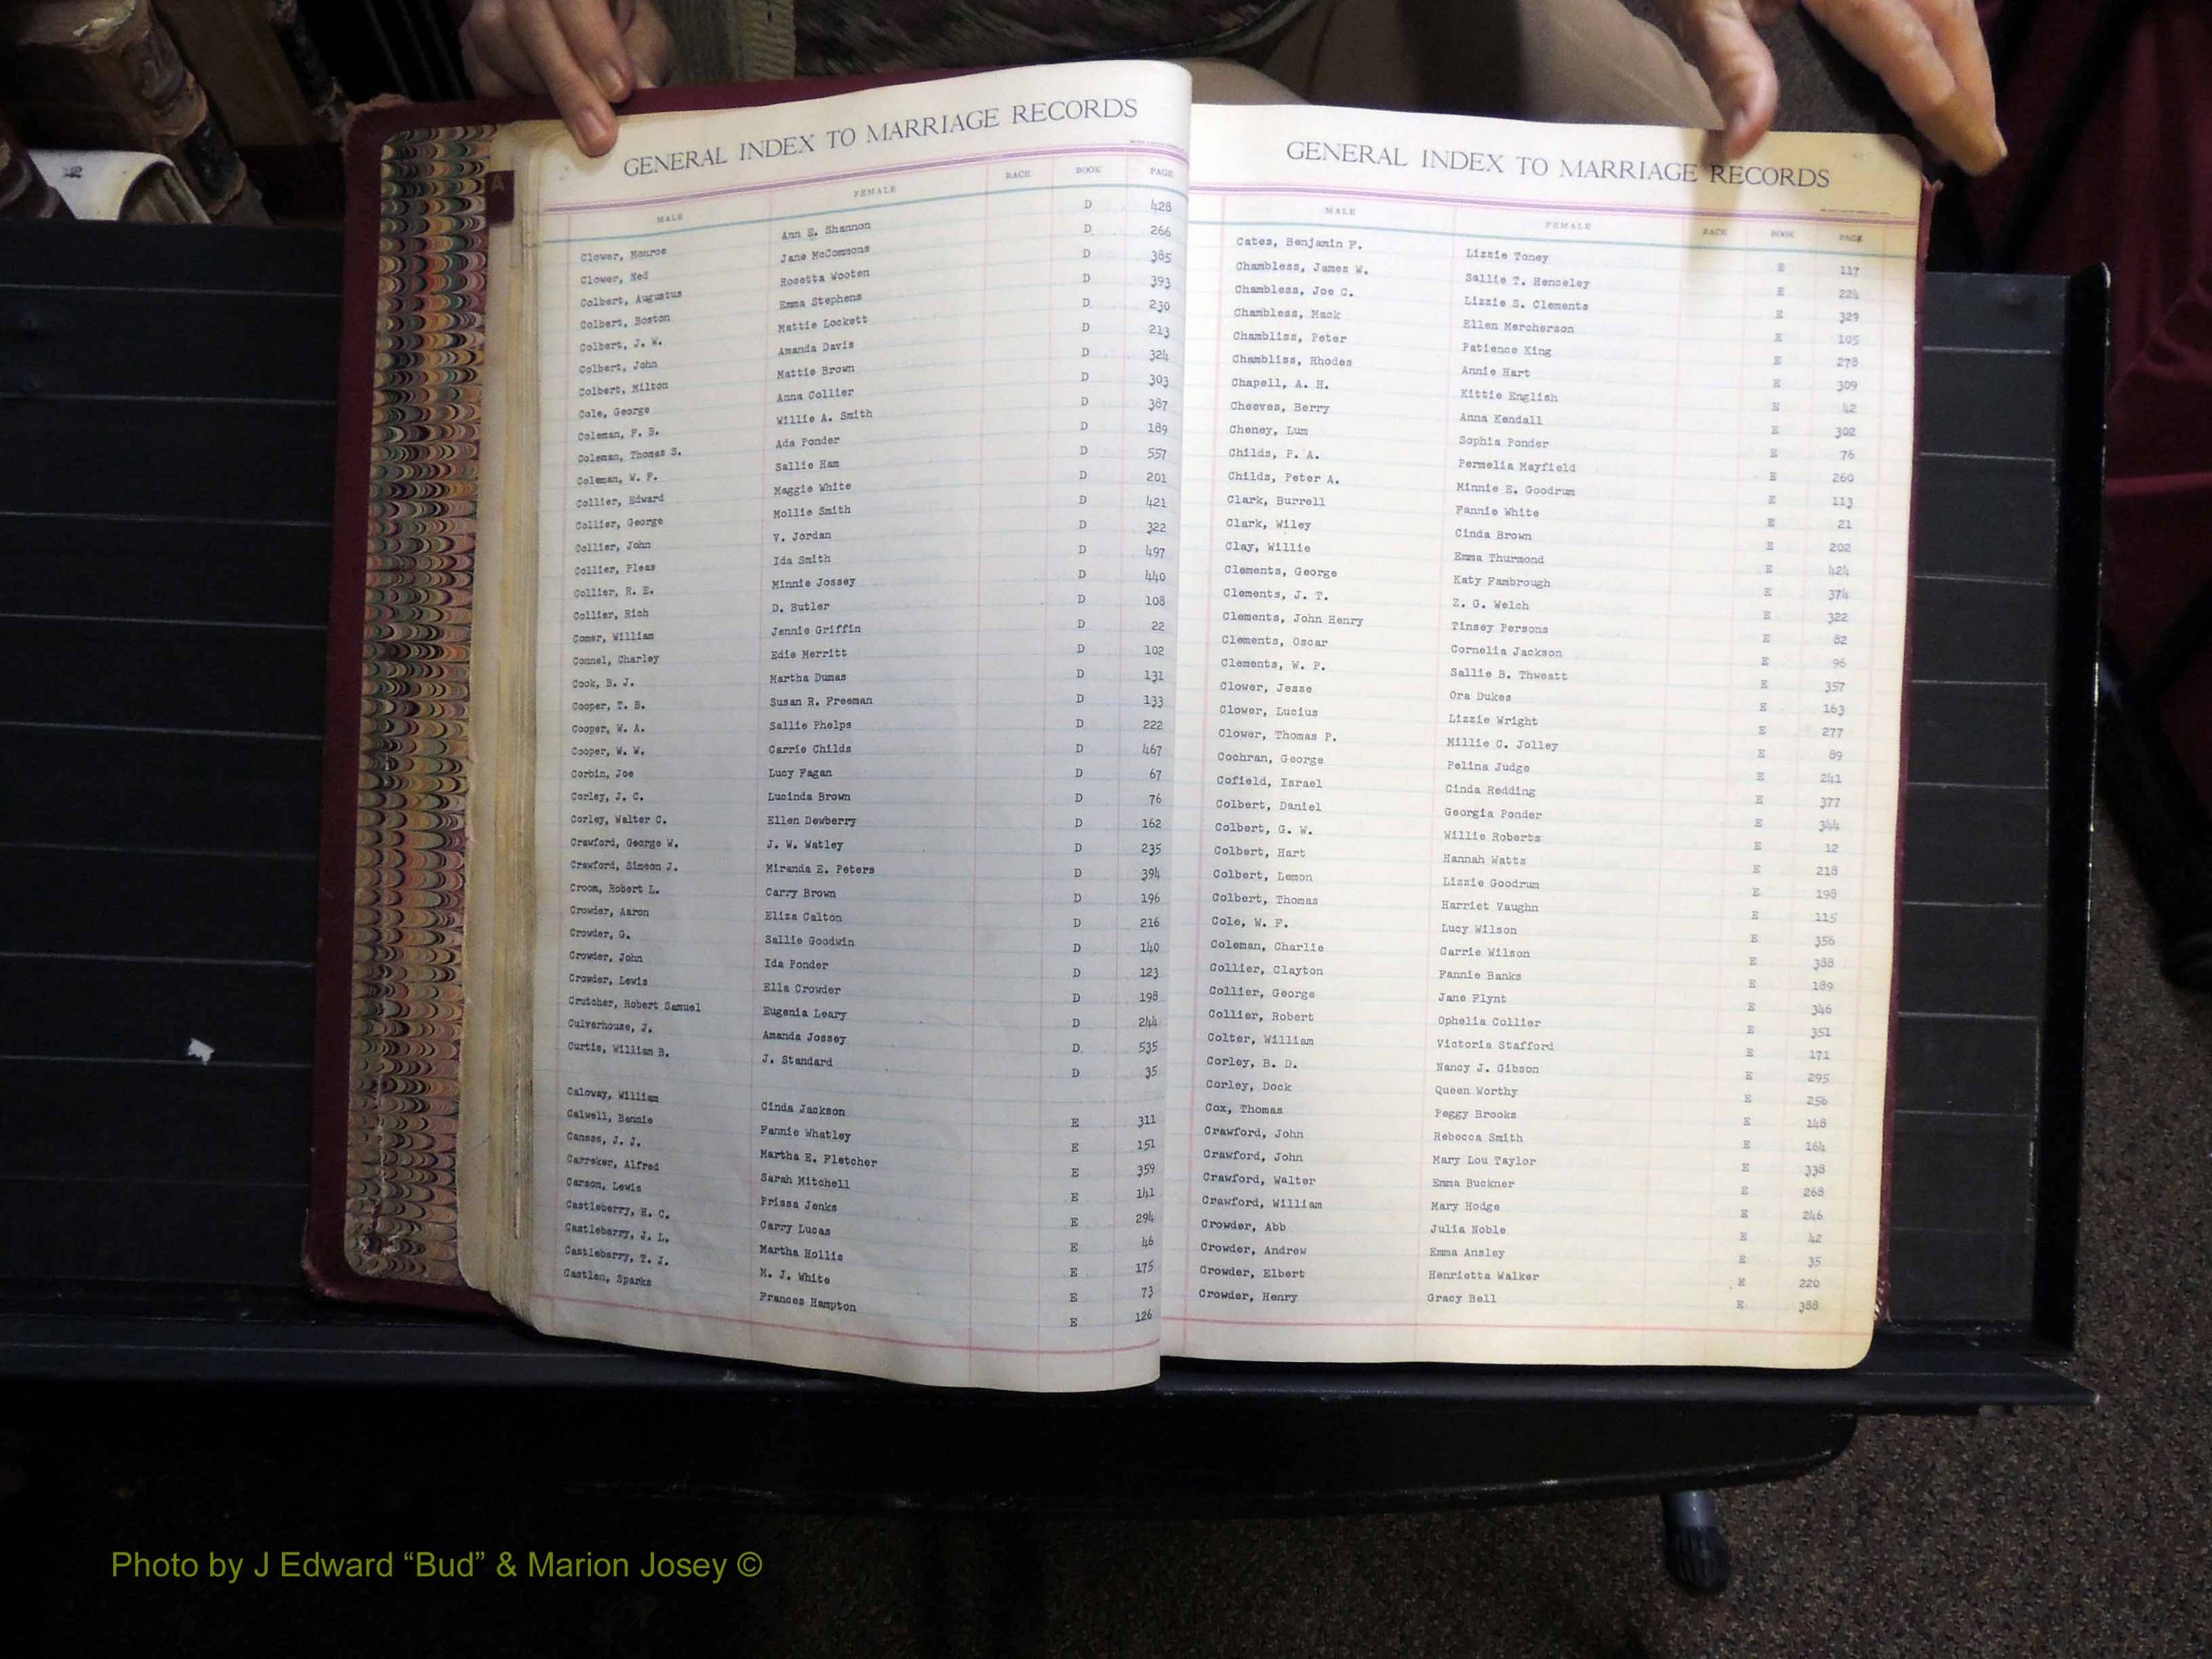 GENERAL INDEX TO MARRIAGE RECORDS
MALE FEMALE RACE BOOK PAGE
Clower, Monroe Ann E. Shannon D 428
Clower, Ned Jane McCommons D. 266
Colbert, Augustus Rosetta Wooten D 385
Colbert, Boston Emma Stephens D 393
Colbert, J. W. Mattie Lockett D 230
Colbert, John Amanda Davis D 213
Colbert, Milton Mattie Brown D 324
Cole, George Anna Collier D 303
Coleman, F. B. Willie A. Smith D 387
Coleman, Thomas S. Ada Ponder D 189
Coleman, W. P. Sallie Ham D 557
Collier, Edward Maggie White D 201
Collier, George Mollie Smith D 421
Collier, John V. Jordan D 322
Collier, Pleas Ida Smith D 497
Collier, R. E. Minnie Jossey D 440
Collier, Rich D. Butler D 108
Comer, William Jennie Griffin D 22
Connel, Charley Edie Merritt D 102
Cook, B. J. Martha Dumas D 131
Cooper, T. B. Susan R. Freeman D 133
Cooper, W. A. Sallie Phelps D 222
Cooper, W. W. Carrie Childs D 467
Corbin, Joe Lucy Fagan D 67
Corley, J. C. Lucinda Brown D 76
Corley, Walter C. Ellen Dewberry D 162
Crawford, George W. J. W. Watley D 235
Crawford, Simeon J. Miranda E. Peters D 394
Croom, Robert L. Carry Brown D 196
Crowder, Aaron Eliza Calton D 216
Crowder, G. Sallie Goodwin D 140
Crowder, John Ida Ponder D 123
Crowder, Lewis Ella Crowder D 198
Crutcher, Robert Samuel Eugenia Leary D 244
Culverhouse, J. Amanda Jossey D. 535
Curtis, William B. J. Standard D 35
Caloway, William Cinda Jackson E 311
Calwell, Bennie Fannie Whatley E 151
Caness, J. J. Martha E. Fletcher E 359
Carreker, Alfred Sarah Mitchell E 141
Carson, Lewis Prissa Jenks E 294
Castleberry, H. C. Carry Lucas E 46
Castleberry, J. L. Martha Hollis E 175
Castleberry, T. J. M. J. White E 73
Castlen, Sparks Frances Hampton E 126
GENERAL INDEX TO MARRIAGE RECORDS
MALE FEMALE RACE BOOK PAGE
Cates, Benjamin F. Lizzie Toney E 117
Chambless, James W. Sallie T. Henceley E 224
Chambless, Joe C. Lizzie S. Clements E 329
Chambless, Mack Ellen Mercherson E 105
Chambliss, Peter Patience King E 278
Chambliss, Rhodes Annie Hart E 309
Chapell, A. H. Kittie English E 42
Cheeves, Berry Anna Kendall E 302
Cheney, Lum Sophia Ponder E 76
Childs, P. A. Permelia Mayfield E 260
Childs, Peter A. Minnie E. Goodrum E 113
Clark, Burrell Fannie White E 21
Clark, Wiley Cinda Brown E 202
Clay, Willie Emma Thurmond E 424
Clements, George Katy Fambrough E 374
Clements, J. T. Z. G. Welch E 322
Clements, John Henry Tinsey Persons E 82
Clements, Oscar Cornelia Jackson E 96
Clements, W. P. Sallie B. Thweatt E 357
Clower, Jesse Ora Dukes E 163
Clower, Lucius Lizzie Wright E 277
Clower, Thomas P. Millie C. Jolley E 89
Cochran, George Pelina Judge E 241
Cofield, Israel Cinda Redding E 377
Colbert, Daniel Georgia Ponder E 344
Colbert, G. W. Willie Roberts E 12
Colbert, Hart Hannah Watts E 218
Colbert, Lemon Lizzie Goodrum E 198
Colbert, Thomas Harriet Vaughn E 115
Cole, W. F. Lucy Wilson E 356
Coleman, Charlie Carrie Wilson E 388
Collier, Clayton Fannie Banks E 189
Collier, George Jane Flynt E 346
Collier, Robert Ophelia Collier E 351
Colter, William Victoria Stafford E 171
Corley, B. D. Nancy J. Gibson E 295
Corley, Dock Queen Worthy E 256
Cox, Thomas Peggy Brooks E 148
Crawford, John Rebecca Smith E 164
Crawford, John Mary Lou Taylor E 338
Crawford, Walter Emma Buckner E 268
Crawford, William Mary Hodge E 246
Crowder, Abb Julia Noble E 42
Crowder, Andrew Emma Ansley E 35
Crowder, Elbert Henrietta Walker E 220
Crowder, Henry Gracy Bell E 388
A
Photo by J Edward “Bud” & Marion Josey ©